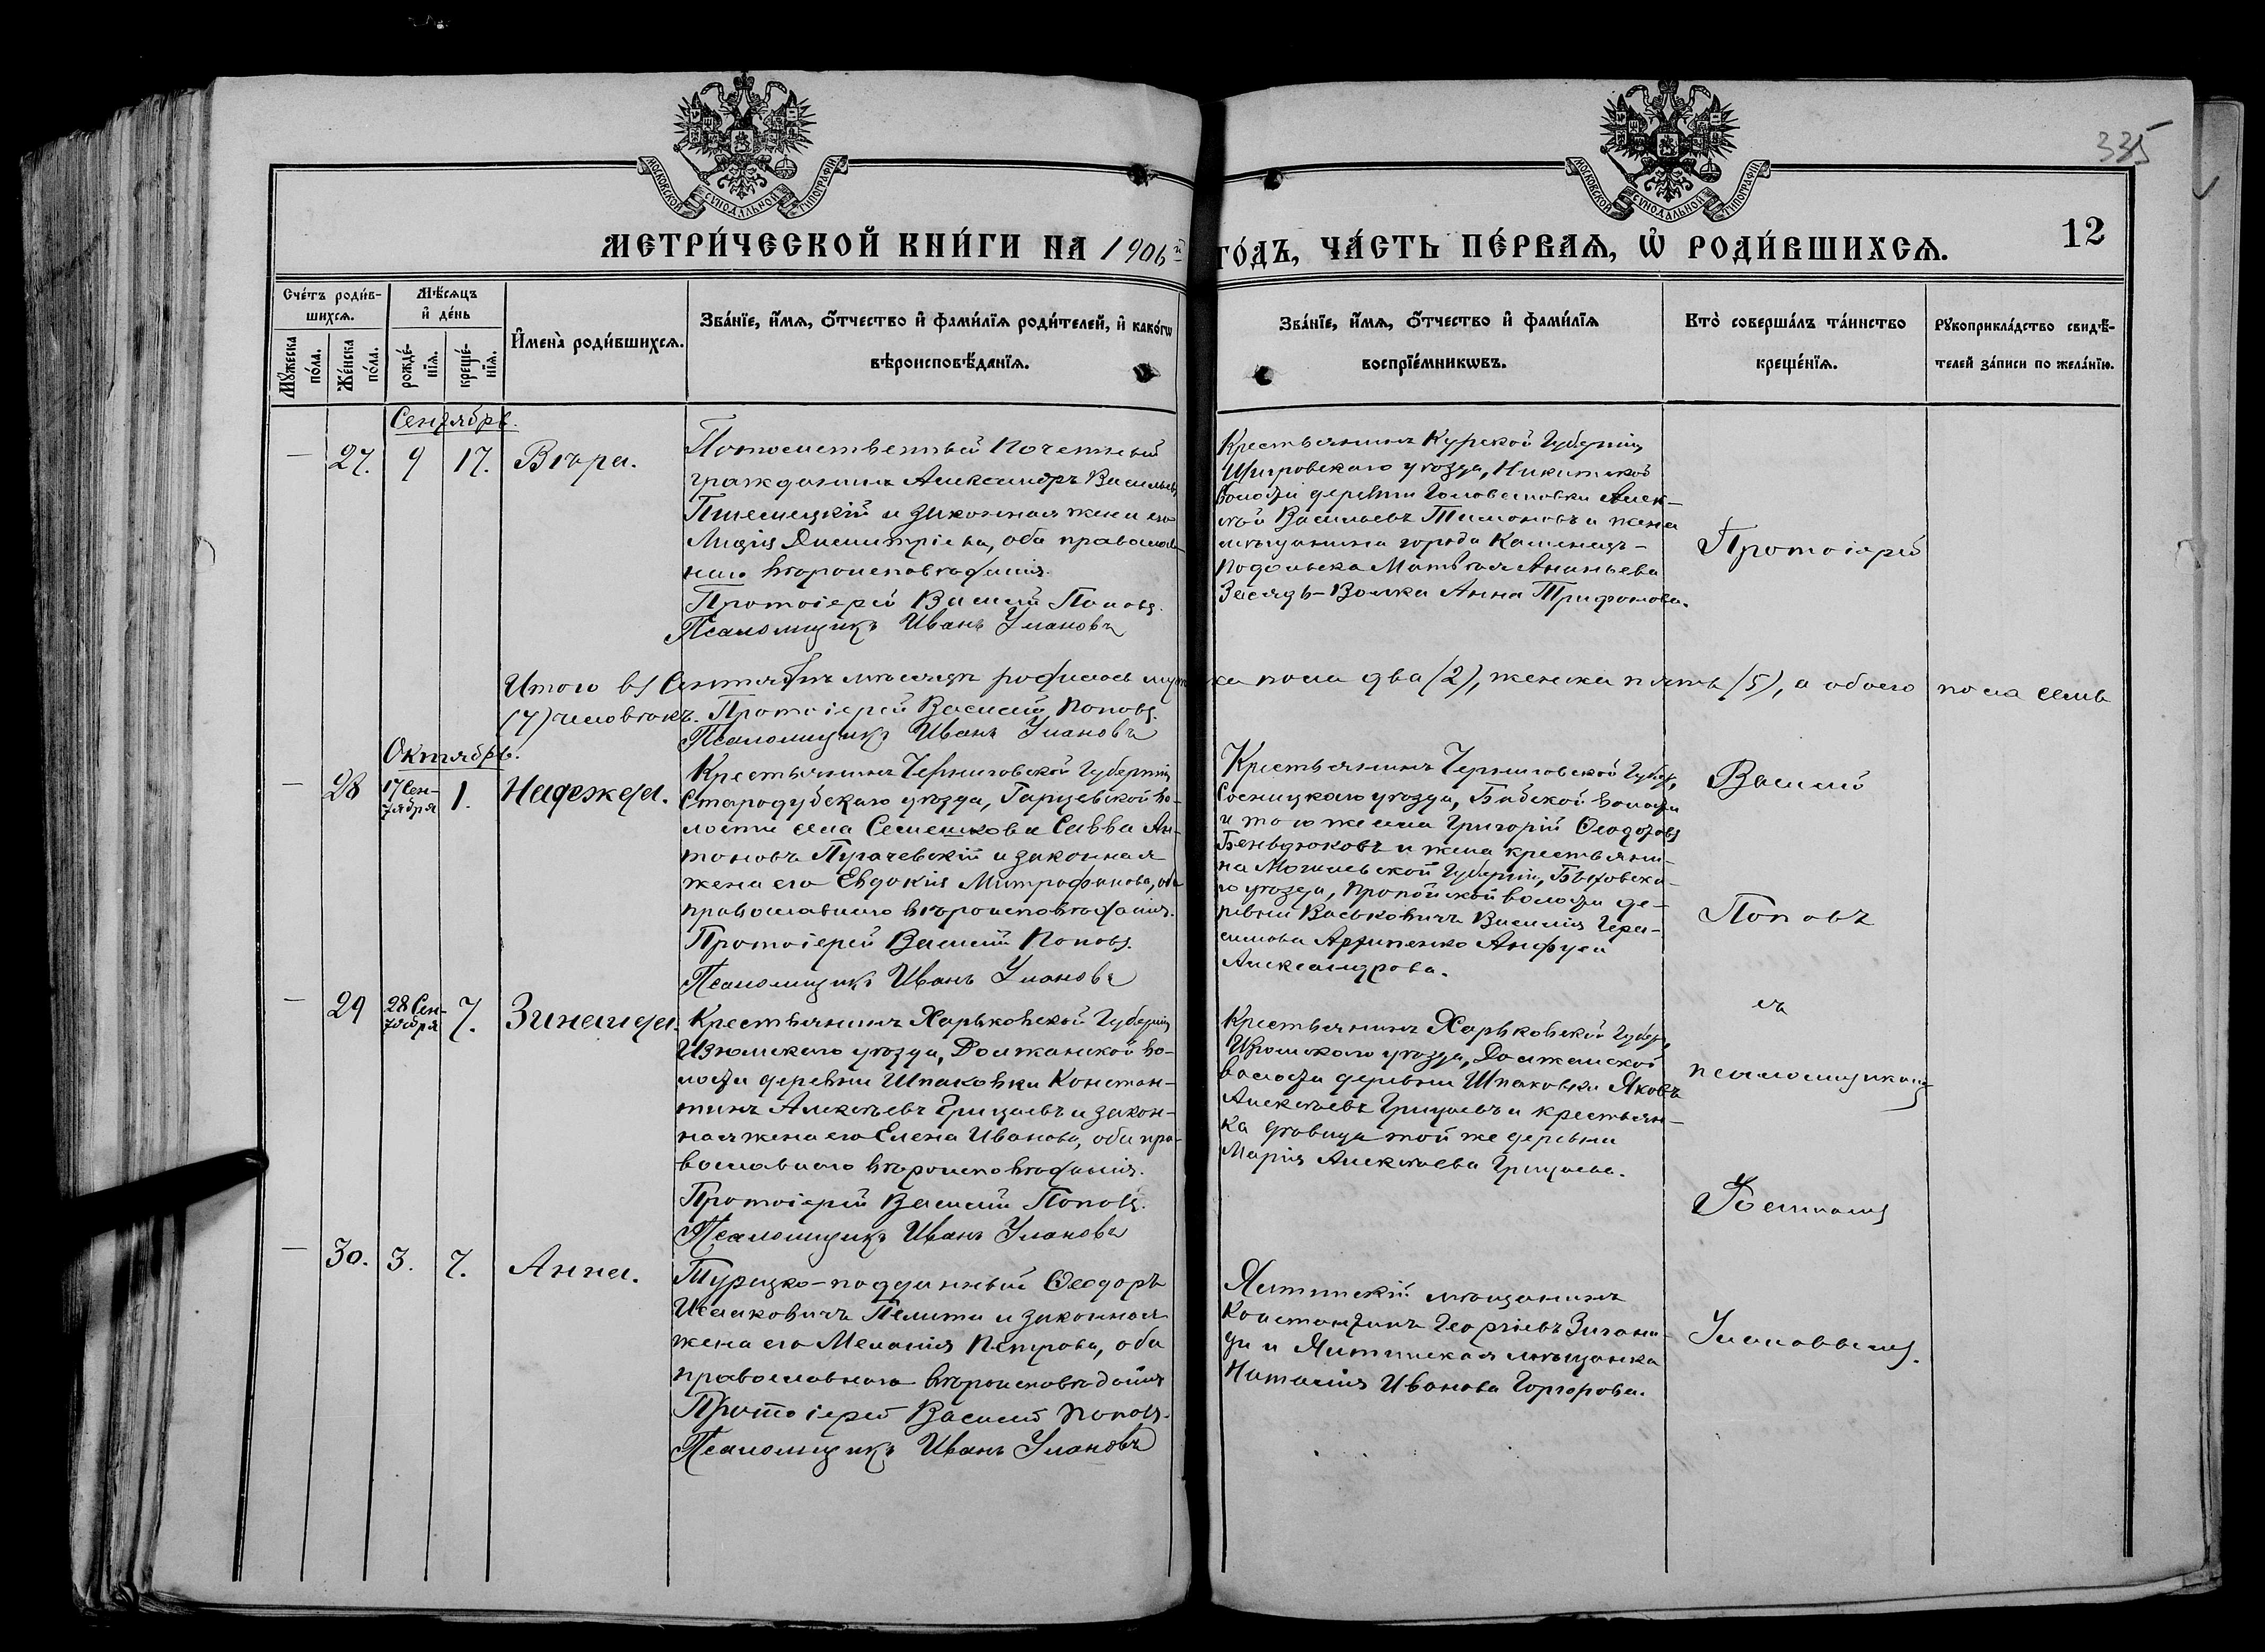 335
МОСКОВСКОЙ СѴНОДАЛЬНОЙ ТИПОГРАФІИ
МОСКОВСКОЙ СѴНОДАЛЬНОЙ ТИПОГРАФІИ
МЕТРИ́ЧЕСКОЙ КНИ́ГИ НА 1906 й
ГО́ДЪ, ЧА́СТЬ ПЕ́РВАѦ, Ѡ РОДИ́ВШИХСѦ.
12
Сче́тъ роди́в-
шихсѧ.
Мꙋ́жеска
по́ла.
Же́нска
по́ла.
Мѣ́сѧцъ
и҆ де́нь
рожде́-
нїѧ.
креще́-
нїѧ.
И҆мена̀ роди́вшихсѧ.
Зва́нїе, и҆́мѧ, ѻ҆́тчество и҆ фами́лїѧ роди́телей, и҆ како́гѡ
вѣроисповѣ́данїѧ.
Зва́нїе, и҆́мѧ, ѻ҆́тчество и҆ фами́лїѧ
воспрїе́мникѡвъ.
Кто̀ соверша́лъ та́инство
креще́нїѧ.
Рꙋкоприкла́дство свидѣ́-
телей за́писи по жела́нїю.
Сентябрь.
— 27. 9 17. Вѣра.
Потомственный почетный
гражданинъ Александръ Васильевъ
и законная жена его
Лидія Димитріева, оба православ-
наго вѣроисповѣданія.
Протоіерей Василій Поповъ.
Псаломщикъ Иванъ Улановъ
Крестьянинъ Курской Губерніи
Щигровскаго уѣзда, Никитской
волости деревни Головиновки Алек-
сѣй Васильевъ Тимоновъ и жена
мѣщанина города Каменецъ-
Подольска Матвѣя Ананьева
Засядь-Волка Анна Трифонова.
Итого въ Сентябрѣ мѣсяцѣ родилось муже
ска пола два (2), женска пять (5), а обоего пола семь
(7) человѣкъ. Протоіерей Василій Поповъ.
Псаломщикъ Иванъ Улановъ
Октябрь.
— 28 17 Сен-
тября 1. Надежда.
Крестьянинъ Черниговской Губерніи
Стародубскаго уѣзда, Гарцевской во-
лости села Семешкова Савва Ан-
тоновъ Пугачевскій и законная
жена его Евдокія Митрофанова, оба
православнаго вѣроисповѣданія.
Протоіерей Василій Поповъ.
Псаломщикъ Иванъ Улановъ
Крестьянинъ Черниговской Губер.
Сосницкаго уѣзда, Бабской волости
и того же села Григорій Ѳеодотовъ
и жена крестьяни-
на Могилевской Губерніи, Быховска-
го уѣзда, Пропойской волости де-
ревни Васьковичъ Василія Гера-
симова Архипенко Анфуса
Александрова.
— 29 28 Сен-
тября 7. Зинаида.
Крестьянинъ Харьковской Губерніи
Изюмскаго уѣзда, Должанской во-
лости деревни Шпаковки Констан-
тинъ Алексѣевъ Грицаевъ и закон-
ная жена его Елена Иванова, оба пра-
вославнаго вѣроисповѣданія.
Протоіерей Василій Поповъ.
Псаломщикъ Иванъ Улановъ
Крестьянинъ Харьковской Губер.
Изюмскаго уѣзда, Должанской
волости деревни Шпаковки Яковъ
Алексѣевъ Грицаевъ и крестьян-
ка дѣвица той же деревни
Марія Алексѣева Грицаева.
— 30. 3. 7. Анна.
Турецко-подданный Ѳеодоръ
Исааковичъ и законная
жена его Меланія Петрова, оба
православнаго вѣроисповѣданія
Протоіерей Василій Поповъ.
Псаломщикъ Иванъ Улановъ
Ялтинскій мѣщанинъ
Константинъ Георгіевъ
и Ялтинская мѣщанка
Наталія Иванова
Протоіерей
Василій
Поповъ
съ
псаломщикомъ
Іоанномъ
Улановымъ.